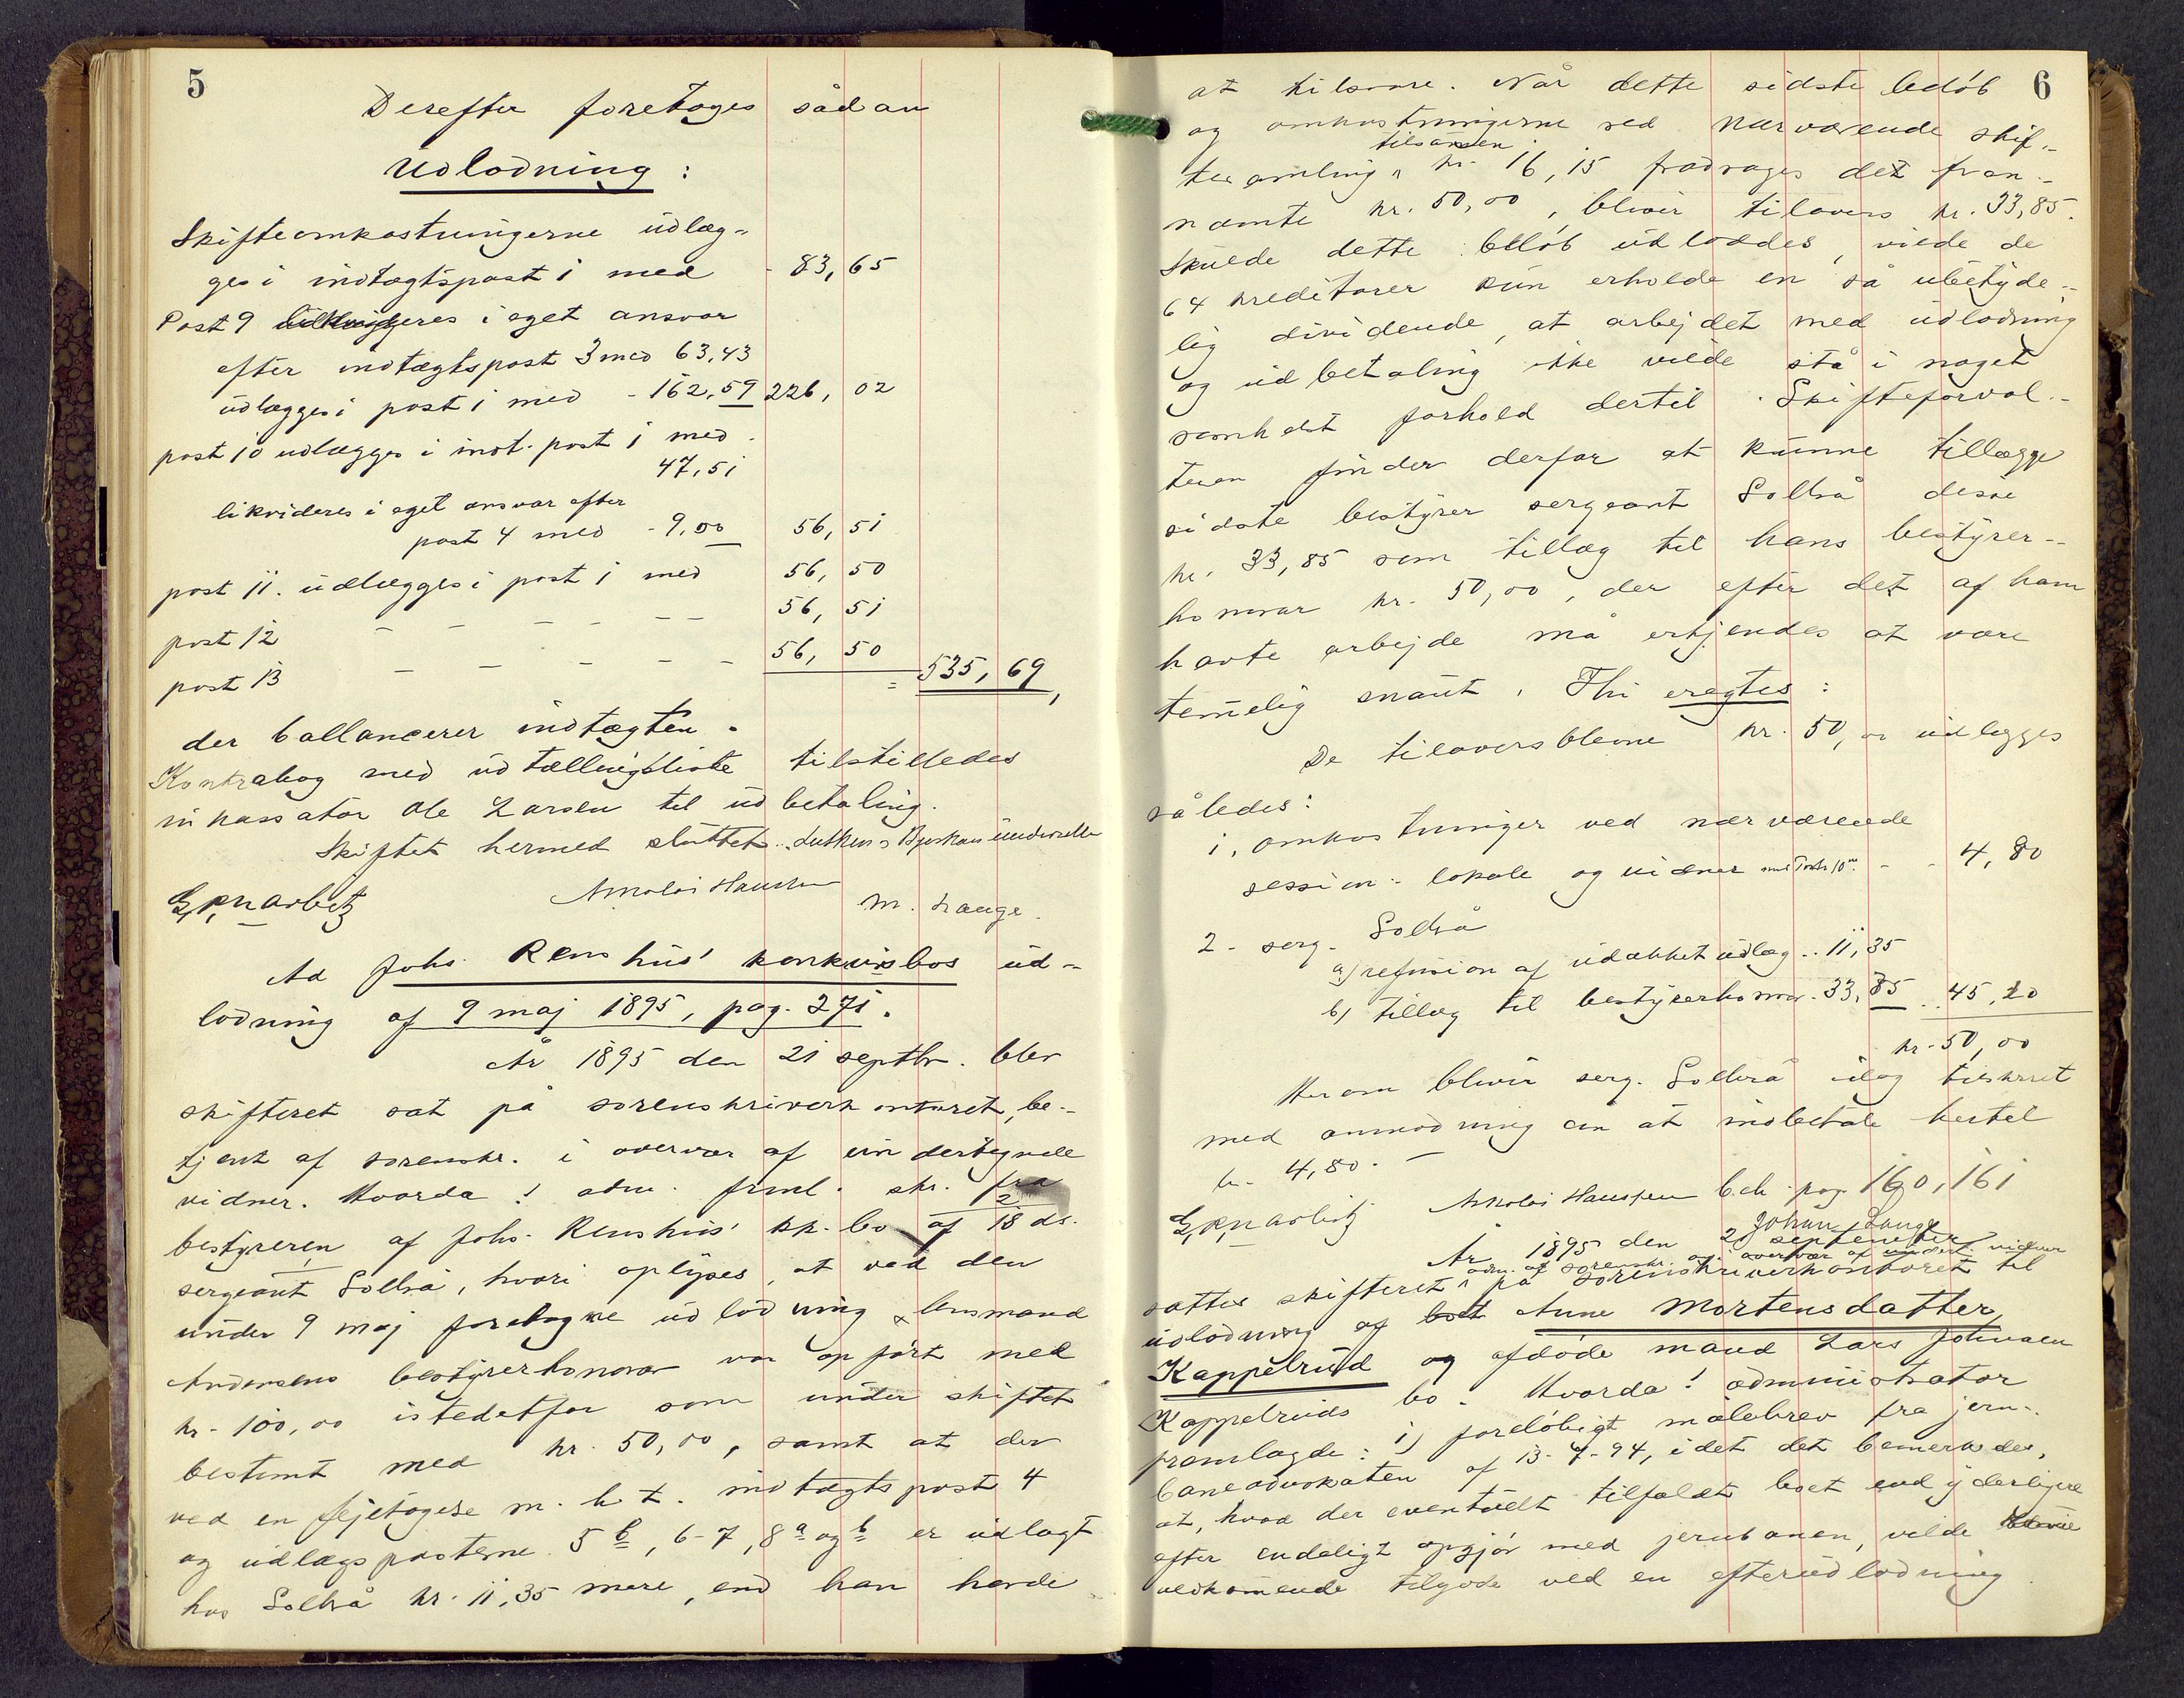 5
Derefter foretages sådan
Udlodning:
Skifteomkostningerne udlæg-
ges i indtægtspost 1 med - 83,65
Post 9 likvideres i eget ansvar
efter indtægtspost 3 med 63,43
udlægges i post 1 med - 162,59 226,02
post 10 udlægges i indt. post 1 med
47,51
likvideres i eget ansvar efter
post 4 med - 9,00 56,51
post 11. udlægges i post 1 med 56,50
post 12 - - - - - - 56,51
post 13 - - - - - 56,50
= 535,69,
der ballancerer indtægten.
Kontrabog med udtællingsliste tilstilledes
inkassator Ole Larsen til udbetaling.
Skiftet hermed sluttet.
Nikolai Hanssen
M. Lange.
Ad Johs. Renshus' konkursbos ud-
lodning af 9 maj 1895, pag. 271.
År 1895 den 21 septbr. blev
skifteret sat på sorenskriverkontoret, be-
tjent af sorenskr. i overvær af undertegnede
vidner. Hvorda! adm. freml. skr. fra
bestyreren af Johs. Renshus' kk. bo af 18 ds.
sergeant Solbrå, hvori oplyses, at ved den
under 9 maj foretagne udlodning lensmand
Andersens bestyrerhonorar var opført med
kr. 100,00 istedetfor som under skiftet
bestemt med kr. 50,00, samt at der
ved en fejltagelse m. h. t. indtægtspost 4
og udlægsposterne 5 b, 6-7, 8 a og b er udlagt
hos Solbrå kr. 11,35 mere, end han havde
6
at tilsvare. Når dette sidste beløb
og omkostningerne ved nærværende skif-
tesamling, tilsammen kr. 16,15 fradrages det fran-
næmte kr. 50,00, bliver tilovers kr. 33,85.
Skulde dette beløb udloddes, vilde de
64 kreditorer kun erholde en så ubetyde-
lig dividende, at arbejdet med udlodning
og udbetaling ikke vilde stå i noget
somhelst forhold dertil. Skifteforval-
teren finder derfor at kunne tillægge
sidste bestyrer sergeant Solbrå disse
kr. 33,85 som tillæg til hans bestyrer-
honorar kr. 50,00, der efter det af ham
havte arbejde må erkjendes at være
temelig snaut. Thi eragtes:
De tiloversblevne kr. 50,00 udlægges
således:
1, omkostninger ved nærværende
session: lokale og vidner - - 4,80
2 - serg. Solbrå
a) refusion af udækket udlæg .. 11,35
b) tillæg til bestyrerhonor. 33,85 . 45,20
kr. 50,00
Herom bliver serg. Solbrå idag tilskrevet
med anmodning om at indbetale hertil
kr. 4,80. -
Nikolai Hanssen b. ch. pag. 160, 161
Johan Lange
År 1895 den 21 september
adm. af sorenskr. og i overvær af undert. vidner
sattes skifteret på sorenskriverkontoret til
udlodning af Anne Mortensdatter
Kappelrud og afdøde mand Lars Johnsen
Kappelruds bo. Hvorda! administrator
fremlagde: 1) foreløbigt målebrev fra jern-
baneadvokaten af 13-7-94, idet det bemerkedes,
at, hvad der eventuelt tilfaldt boet end yderligere
efter endeligt opgjør med jernbanen, vilde
vedkommende tilgode ved en efterudlodning